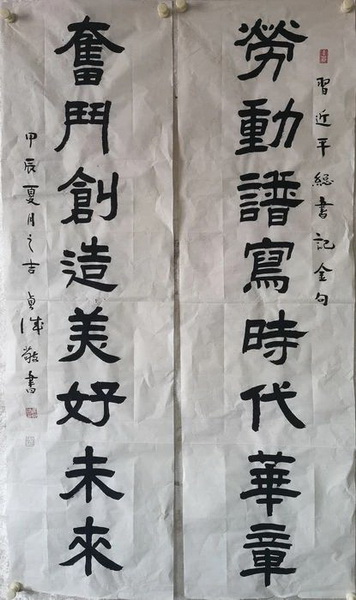 習近平總書記金句
勞動譜寫時代華章
奮鬥創造美好未來
甲辰夏月之吉 貞誠敬書